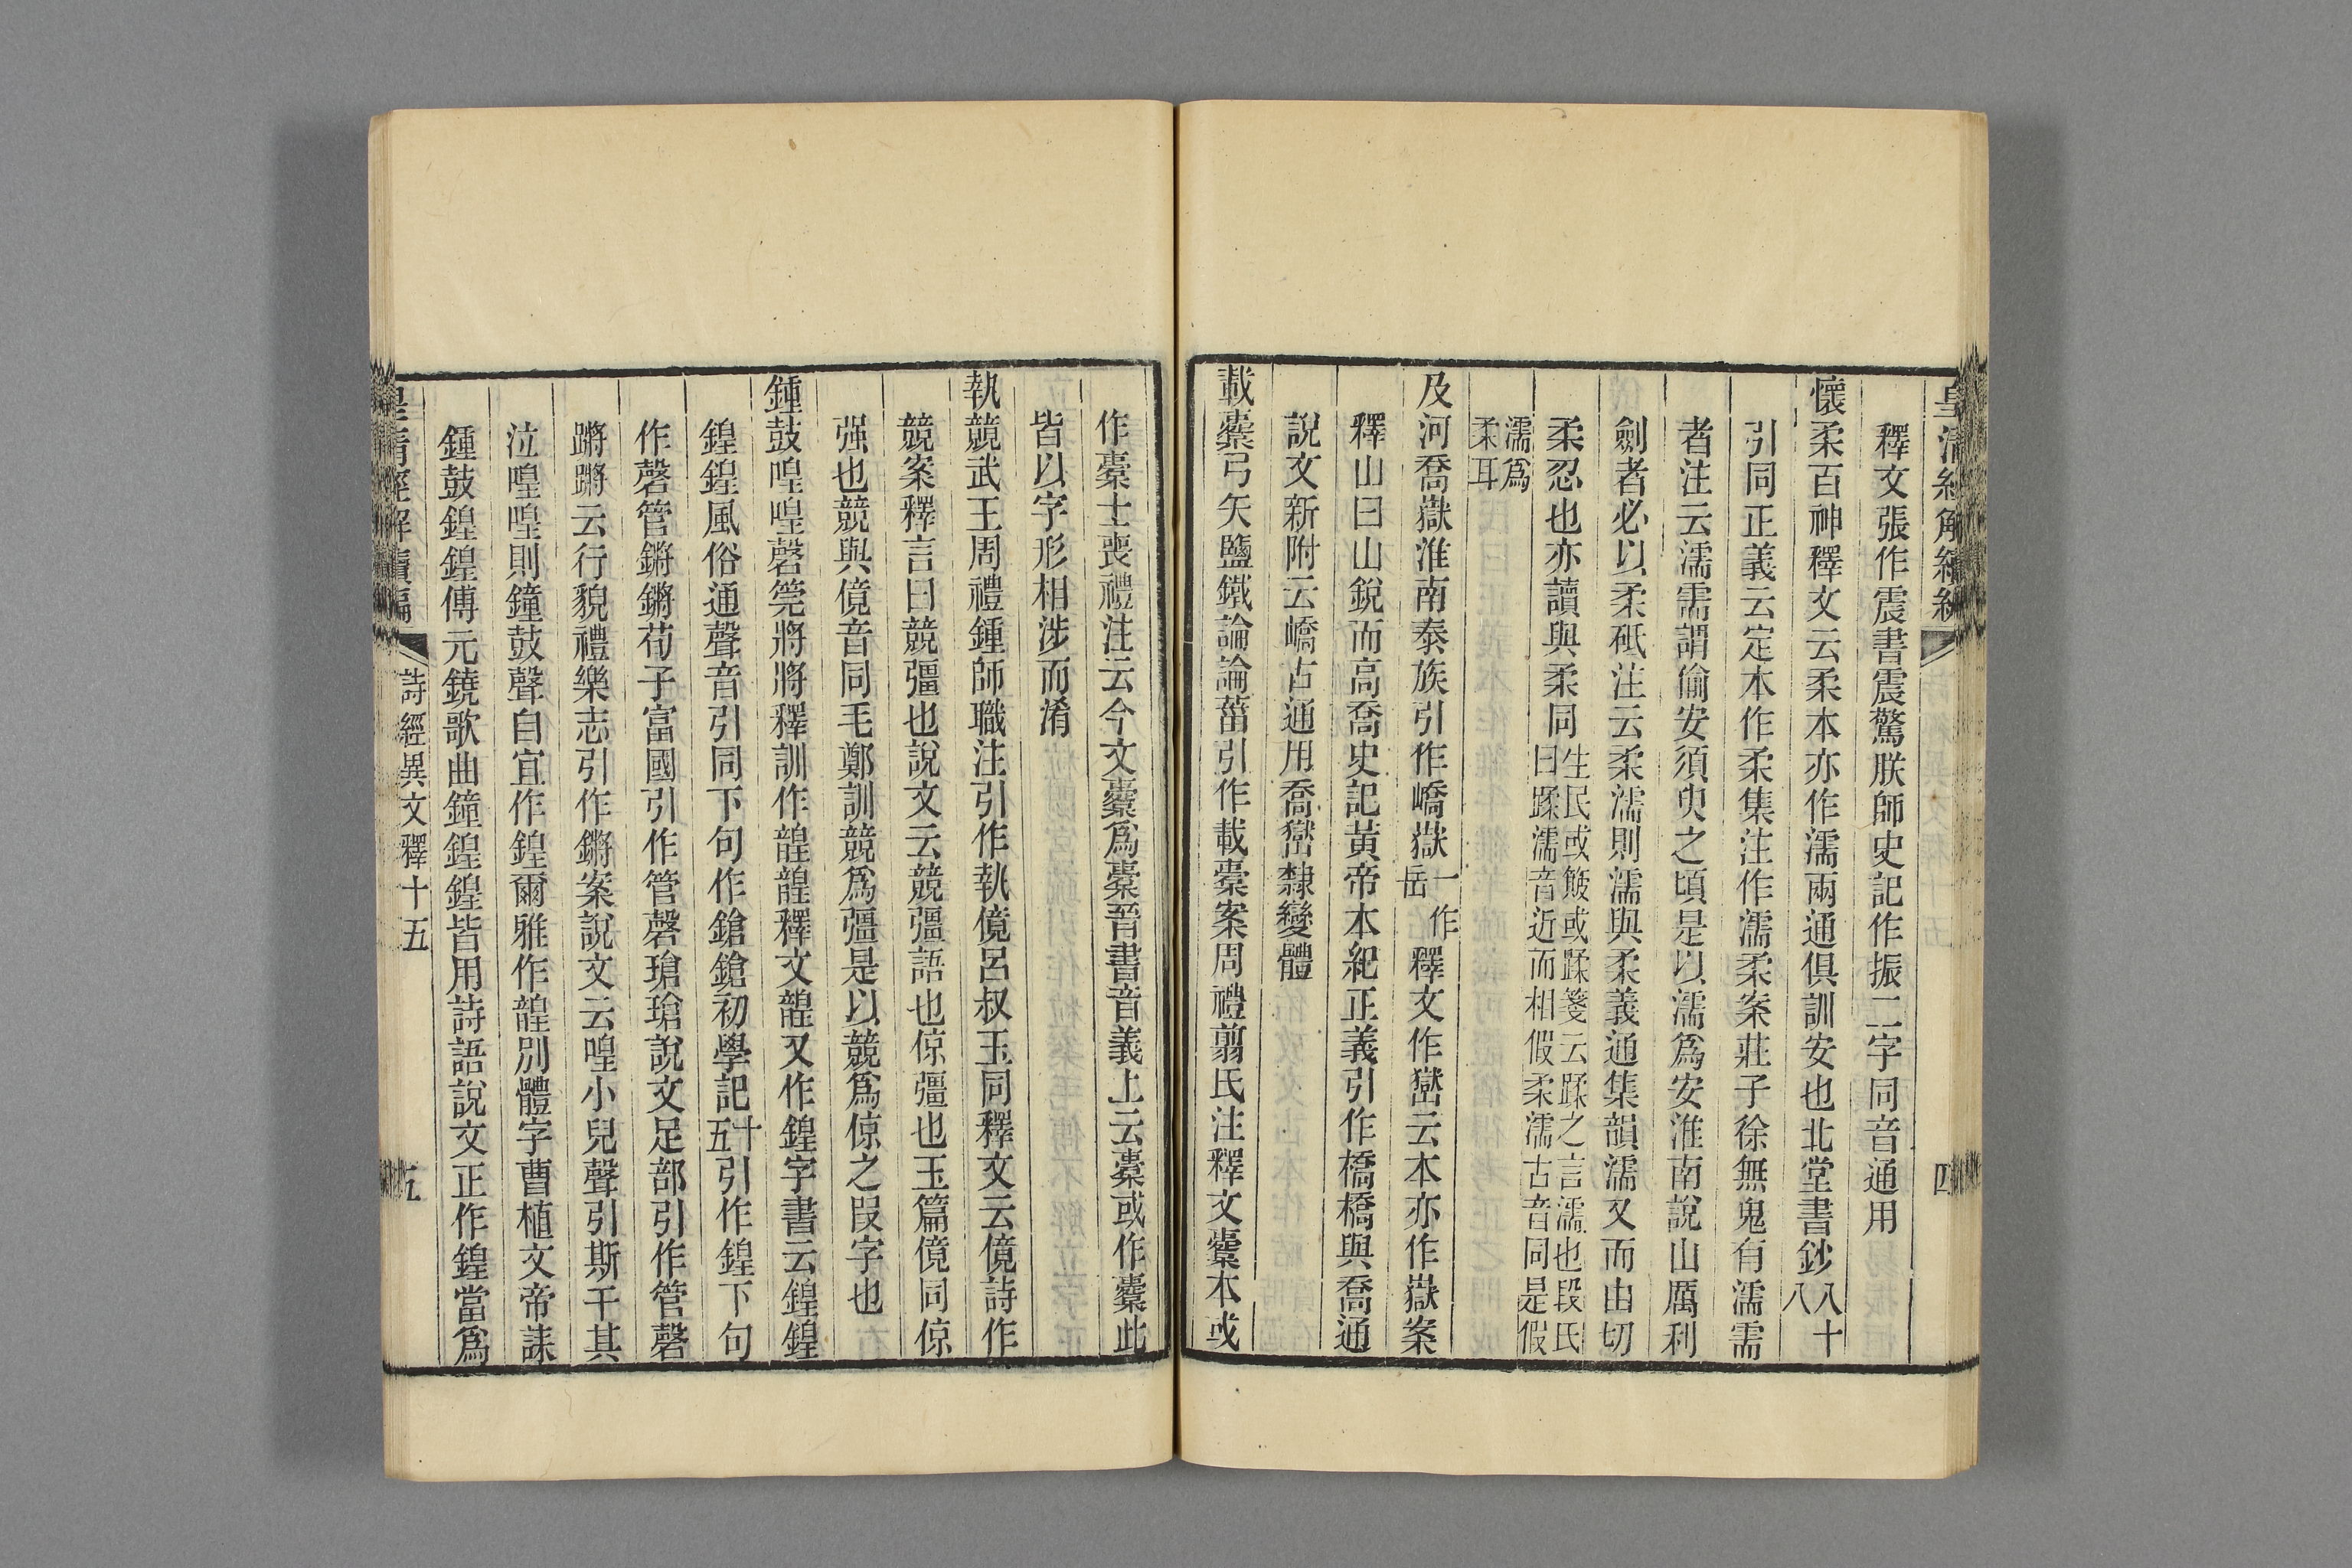 釋文張作震書震驚朕師史記作振二字同音通用
懷柔百神釋文云柔本亦作濡兩通俱訓安也北堂書鈔八十八
引同正義云定本作柔集注作濡柔案莊子徐無鬼有濡需
者注云濡需謂偷安須臾之頃是以濡爲安淮南說山厲利
劍者必以柔砥注云柔濡則濡與柔義通集韻濡又而由切
柔忍也亦讀與柔同生民或簸或蹂箋云蹂之言濡也段氏
曰蹂濡音近而相假柔濡古音同是假
濡爲
柔耳
及河喬嶽淮南泰族引作嶠嶽一作岳釋文作嶨云本亦作嶽案
釋山曰山銳而高喬史記黃帝本紀正義引作橋橋與喬通
說文新附云嶠古通用喬嶨隸變體
載櫜弓矢鹽鐵論論菑引作載櫜案周禮翦氏注釋文櫜本或
作櫜士喪禮注云今文櫜爲櫜晉書音義上云櫜或作櫜此
皆以字形相涉而淆
執競武王周禮鍾師職注引作執傹呂叔玉同釋文云傹詩作
競案釋言曰競彊也說文云競彊語也倞彊也玉篇傹同倞
强也競與傹音同毛鄭訓競爲彊是以競爲倞之叚字也
鍾鼓喤喤磬筦將將釋訓作韹韹釋文韹又作鍠字書云鍠鍠
鍠鍠風俗通聲音引同下句作鎗鎗初學記十五引作鍠下句
作磬管鏘鏘荀子富國引作管磬瑲瑲說文足部引作管磬
蹡蹡云行貌禮樂志引作鏘案說文云喤小兒聲引斯干其
泣喤喤則鐘鼓聲自宜作鍠爾雅作韹別體字曹植文帝誄
鍾鼓鍠鍠傅元鐃歌曲鐘鍠鍠皆用詩語說文正作鍠當爲
皇清經解續編
詩經異文釋十五
五
四